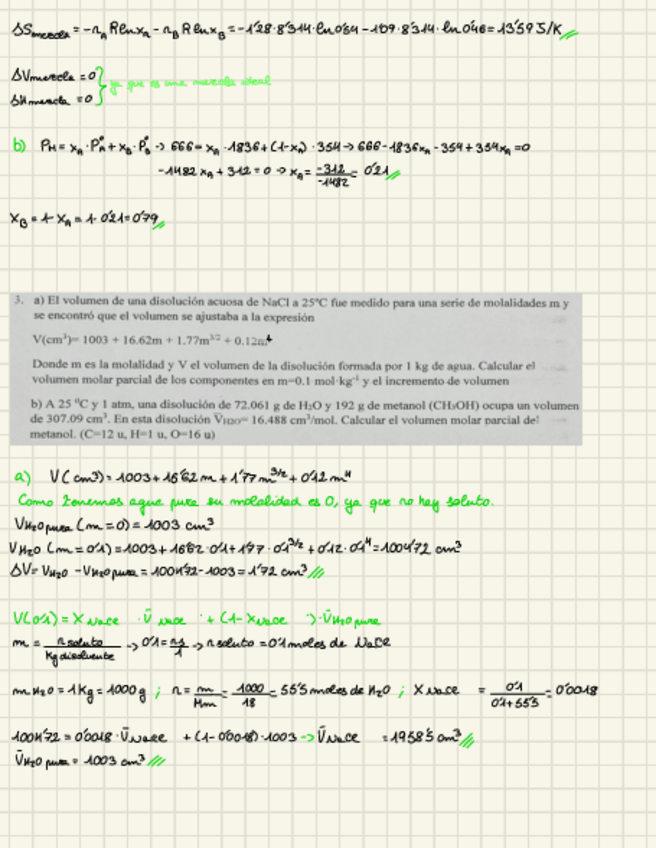 ΔSmezcla = -nA R lnxA - nB R lnxB = -1'28·8'314·ln0'54 - 1'09·8'314·ln0'46 = 13'59 J/K
ΔVmezcla = 0 } ya que es una mezcla ideal
ΔHmezcla = 0
b) PM = xA·P°A + xB·P°B → 666 = xA·1836 + (1-xA)·354 → 666 - 1836xA - 354 + 354xA = 0
-1482 xA + 312 = 0 → xA = -312/-1482 = 0'21
xB = 1 - xA = 1 - 0'21 = 0'79
3. a) El volumen de una disolución acuosa de NaCl a 25°C fue medido para una serie de molalidades m y
se encontró que el volumen se ajustaba a la expresión
V(cm³)= 1003 + 16.62m + 1.77m^3/2 + 0.12m^4
Donde m es la molalidad y V el volumen de la disolución formada por 1 kg de agua. Calcular el
volumen molar parcial de los componentes en m=0.1 mol·kg⁻¹ y el incremento de volumen
b) A 25 °C y 1 atm, una disolución de 72.061 g de H₂O y 192 g de metanol (CH₃OH) ocupa un volumen
de 307.09 cm³. En esta disolución V̄H2O= 16.488 cm³/mol. Calcular el volumen molar parcial del
metanol. (C=12 u, H=1 u, O=16 u)
a) V(cm³) = 1003 + 16'62 m + 1'77 m^3/2 + 0'12 m^4
Como tenemos agua pura su molalidad es 0, ya que no hay soluto.
VH2O pura (m=0) = 1003 cm³
VH2O (m=0'1) = 1003 + 16'62·0'1 + 1'77·0'1^3/2 + 0'12·0'1^4 = 1004'72 cm³
ΔV = VH2O - VH2O pura = 1004'72 - 1003 = 1'72 cm³
V(0'1) = XNaCl · V̄NaCl + (1-XNaCl)·V̄H2O pura
m = n soluto/Kg disolvente → 0'1 = ns/1 → n soluto = 0'1 moles de NaCl
mH2O = 1Kg = 1000g ; n = m/Mm = 1000/18 = 55'5 moles de H2O ; XNaCl = 0'1/0'1+55'5 = 0'0018
1004'72 = 0'0018·V̄NaCl + (1-0'0018)·1003 → V̄NaCl = 1958'5 cm³
V̄H2O pura = 1003 cm³